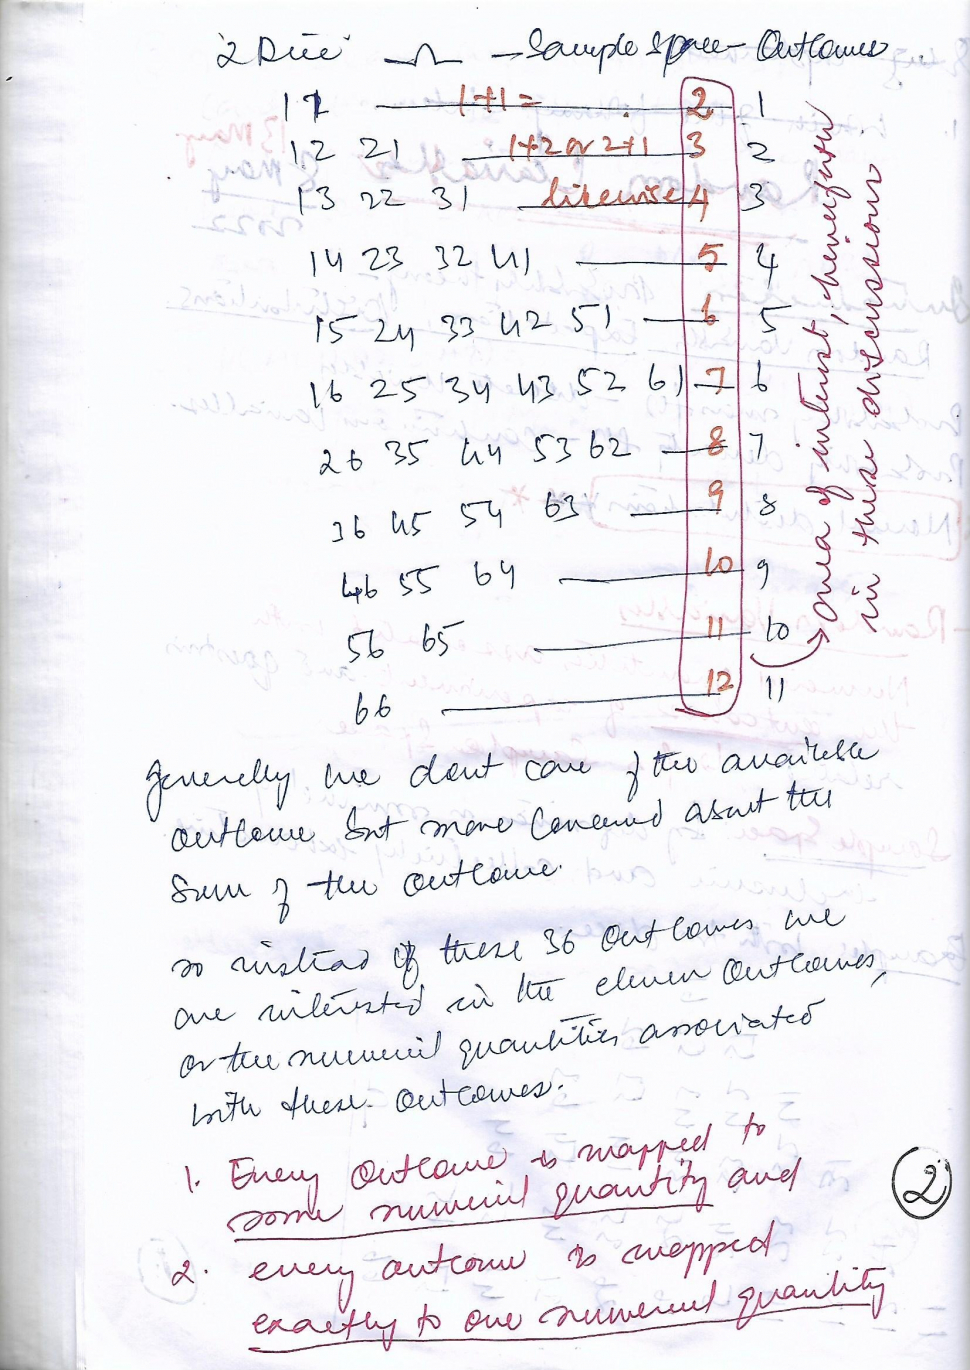 2 Dice Ω - Sample Space - Outcomes
11 1+1 = 2 1
12 21 1+2 or 2+1 3 2
13 22 31 likewise 4 3
14 23 32 41 5 4
15 24 33 42 51 6 5
16 25 34 43 52 61 7 6
26 35 44 53 62 8 7
36 45 54 63 9 8
46 55 64 10 9
56 65 11 10
66 12 11
area of interest, henceforth
in these discussions
Generally we dont care of the available
outcome but more concerned about the
sum of the outcome.
so instead of these 36 outcomes we
are interested in the eleven outcomes,
or the numeric quantities associated
with these outcomes.
1. Every outcome is mapped to
some numeric quantity and
2. every outcome is mapped
exactly to one numeric quantity
2